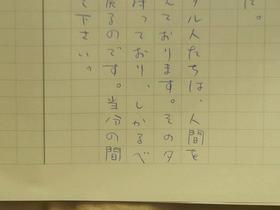 た。
ル人たちは、人間を
えております。そのタ
待っており、しかるべ
戻るのです。当分の間
て下さい。